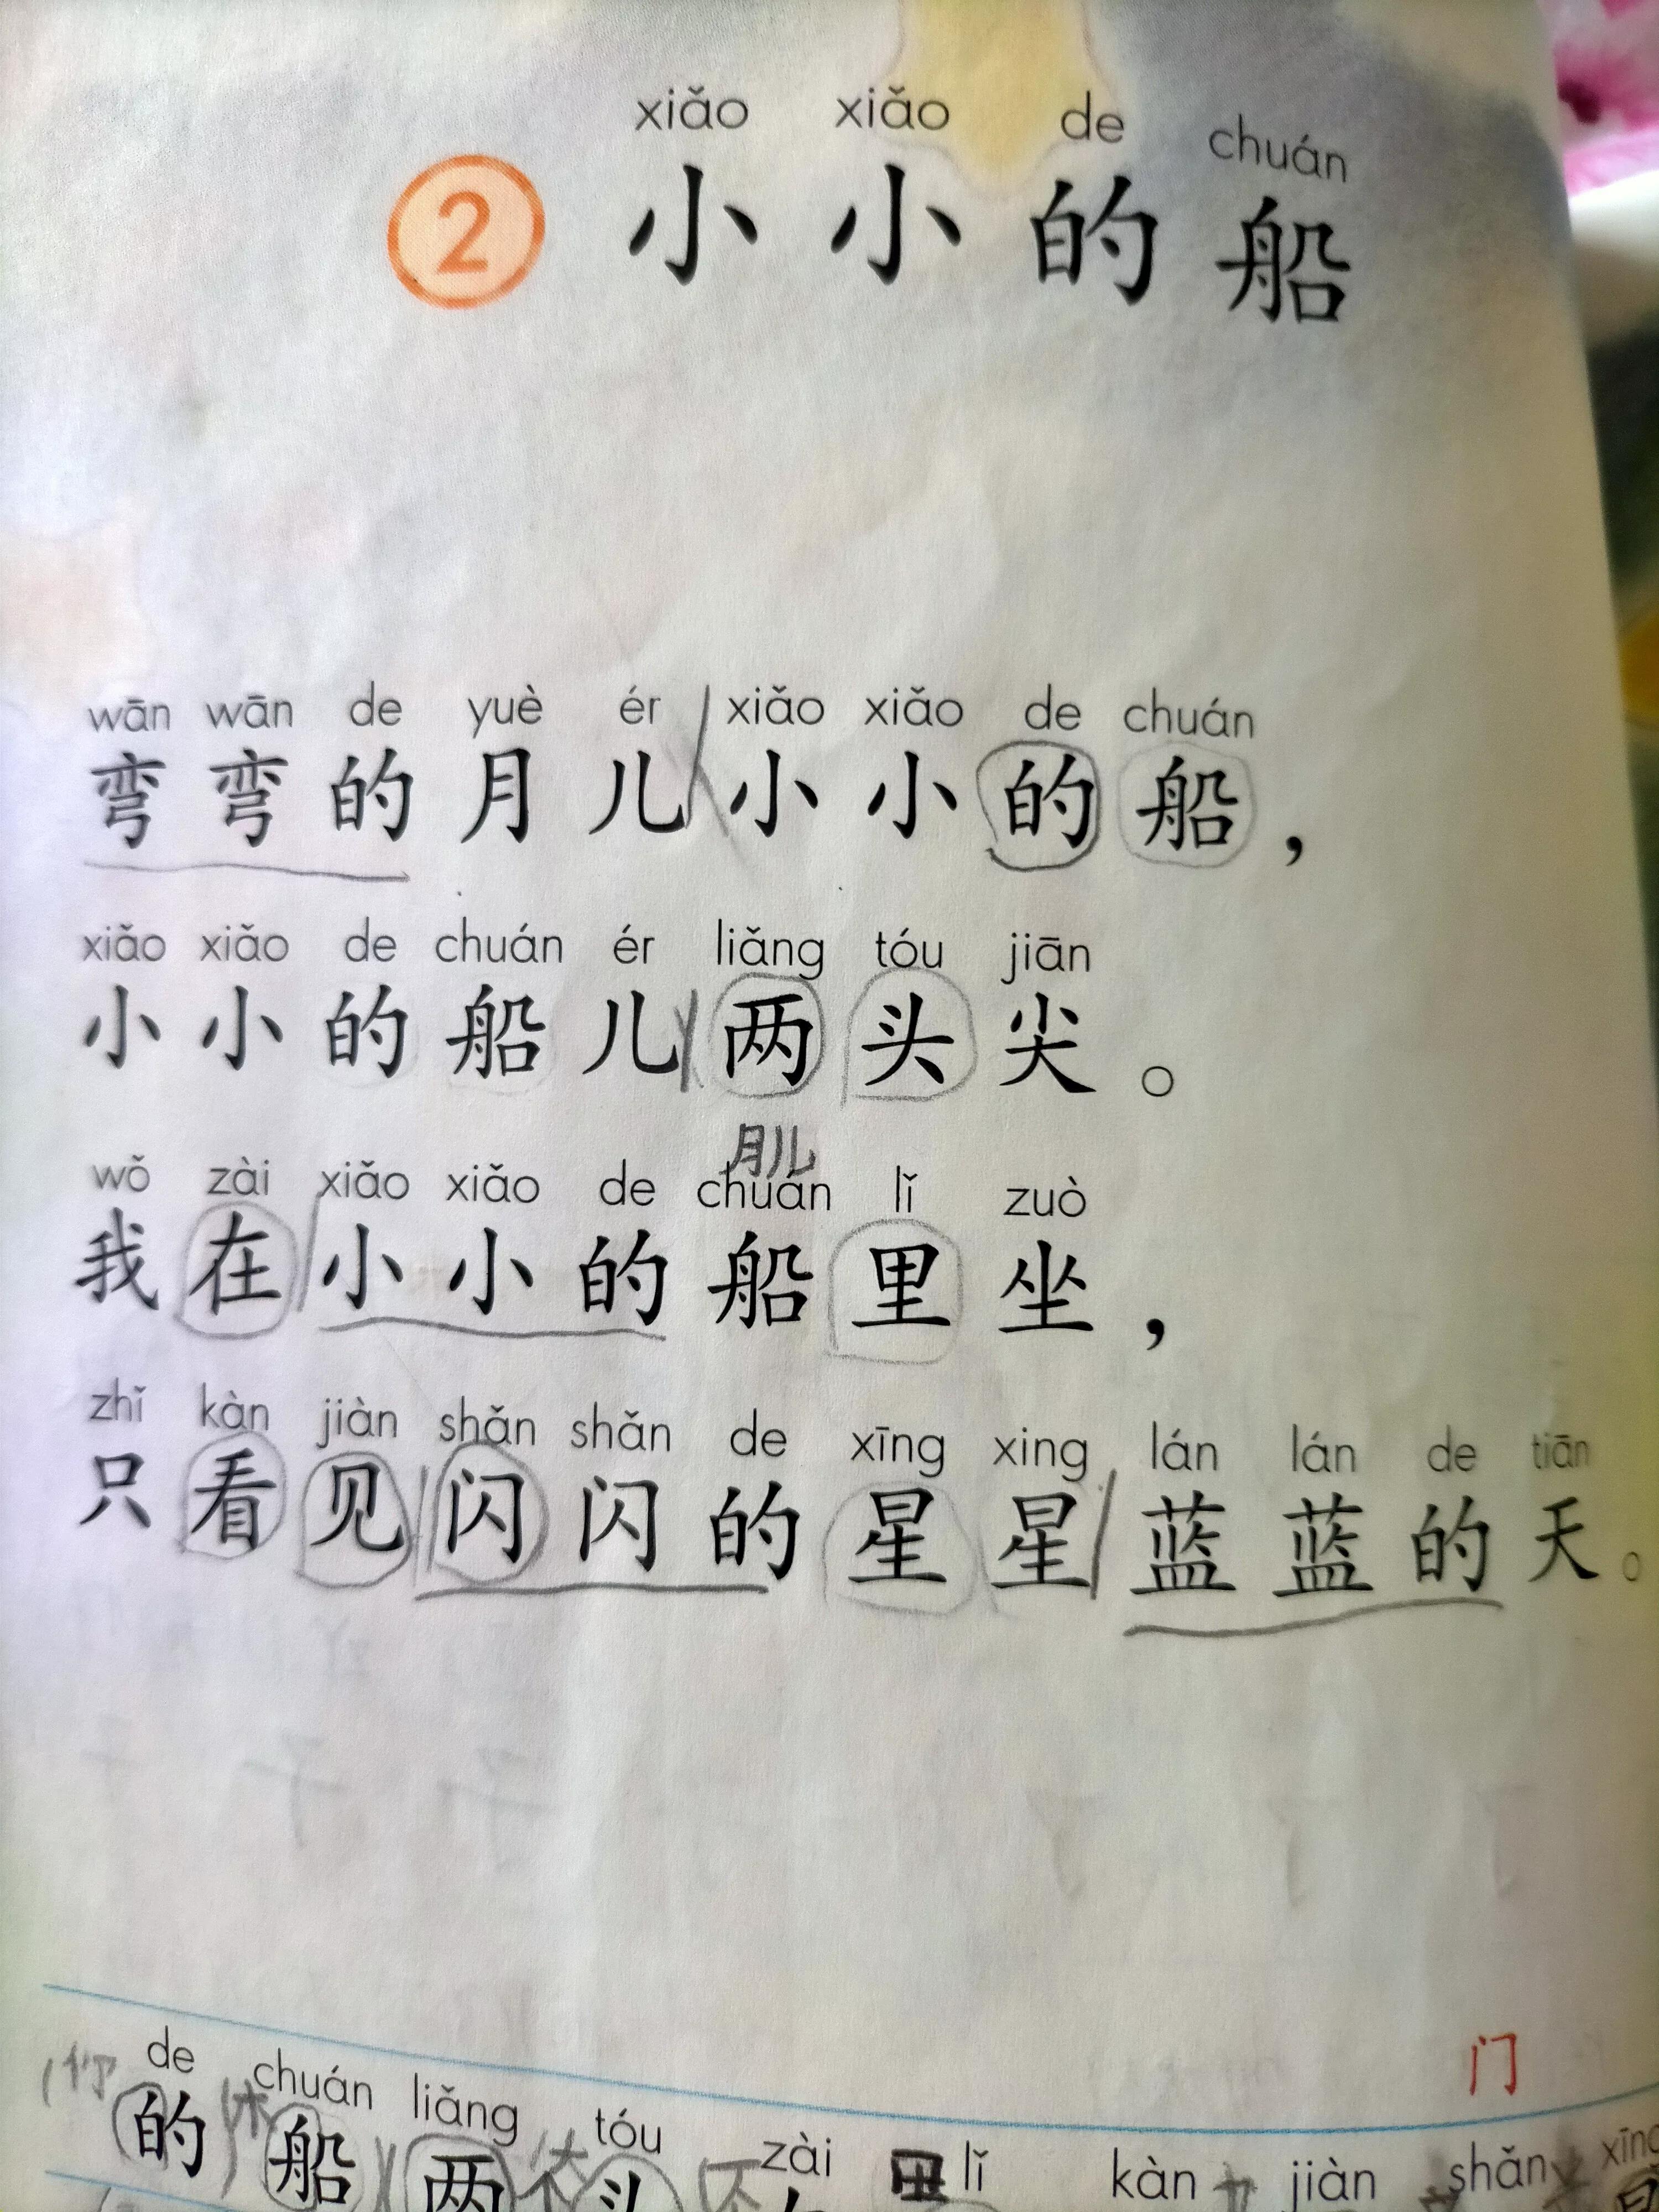 xiǎo xiǎo de chuán
② 小小的船
wān wān de yuè ér xiǎo xiǎo de chuán
弯弯的月儿小小的船，
xiǎo xiǎo de chuán ér liǎng tóu jiān
小小的船儿两头尖。
月儿
wǒ zài xiǎo xiǎo de chuán lǐ zuò
我在小小的船里坐，
zhǐ kàn jiàn shǎn shǎn de xīng xing lán lán de tiān
只看见闪闪的星星蓝蓝的天。
门
de chuán liǎng tóu zài lǐ kàn jiàn shǎn xīng
的船两头